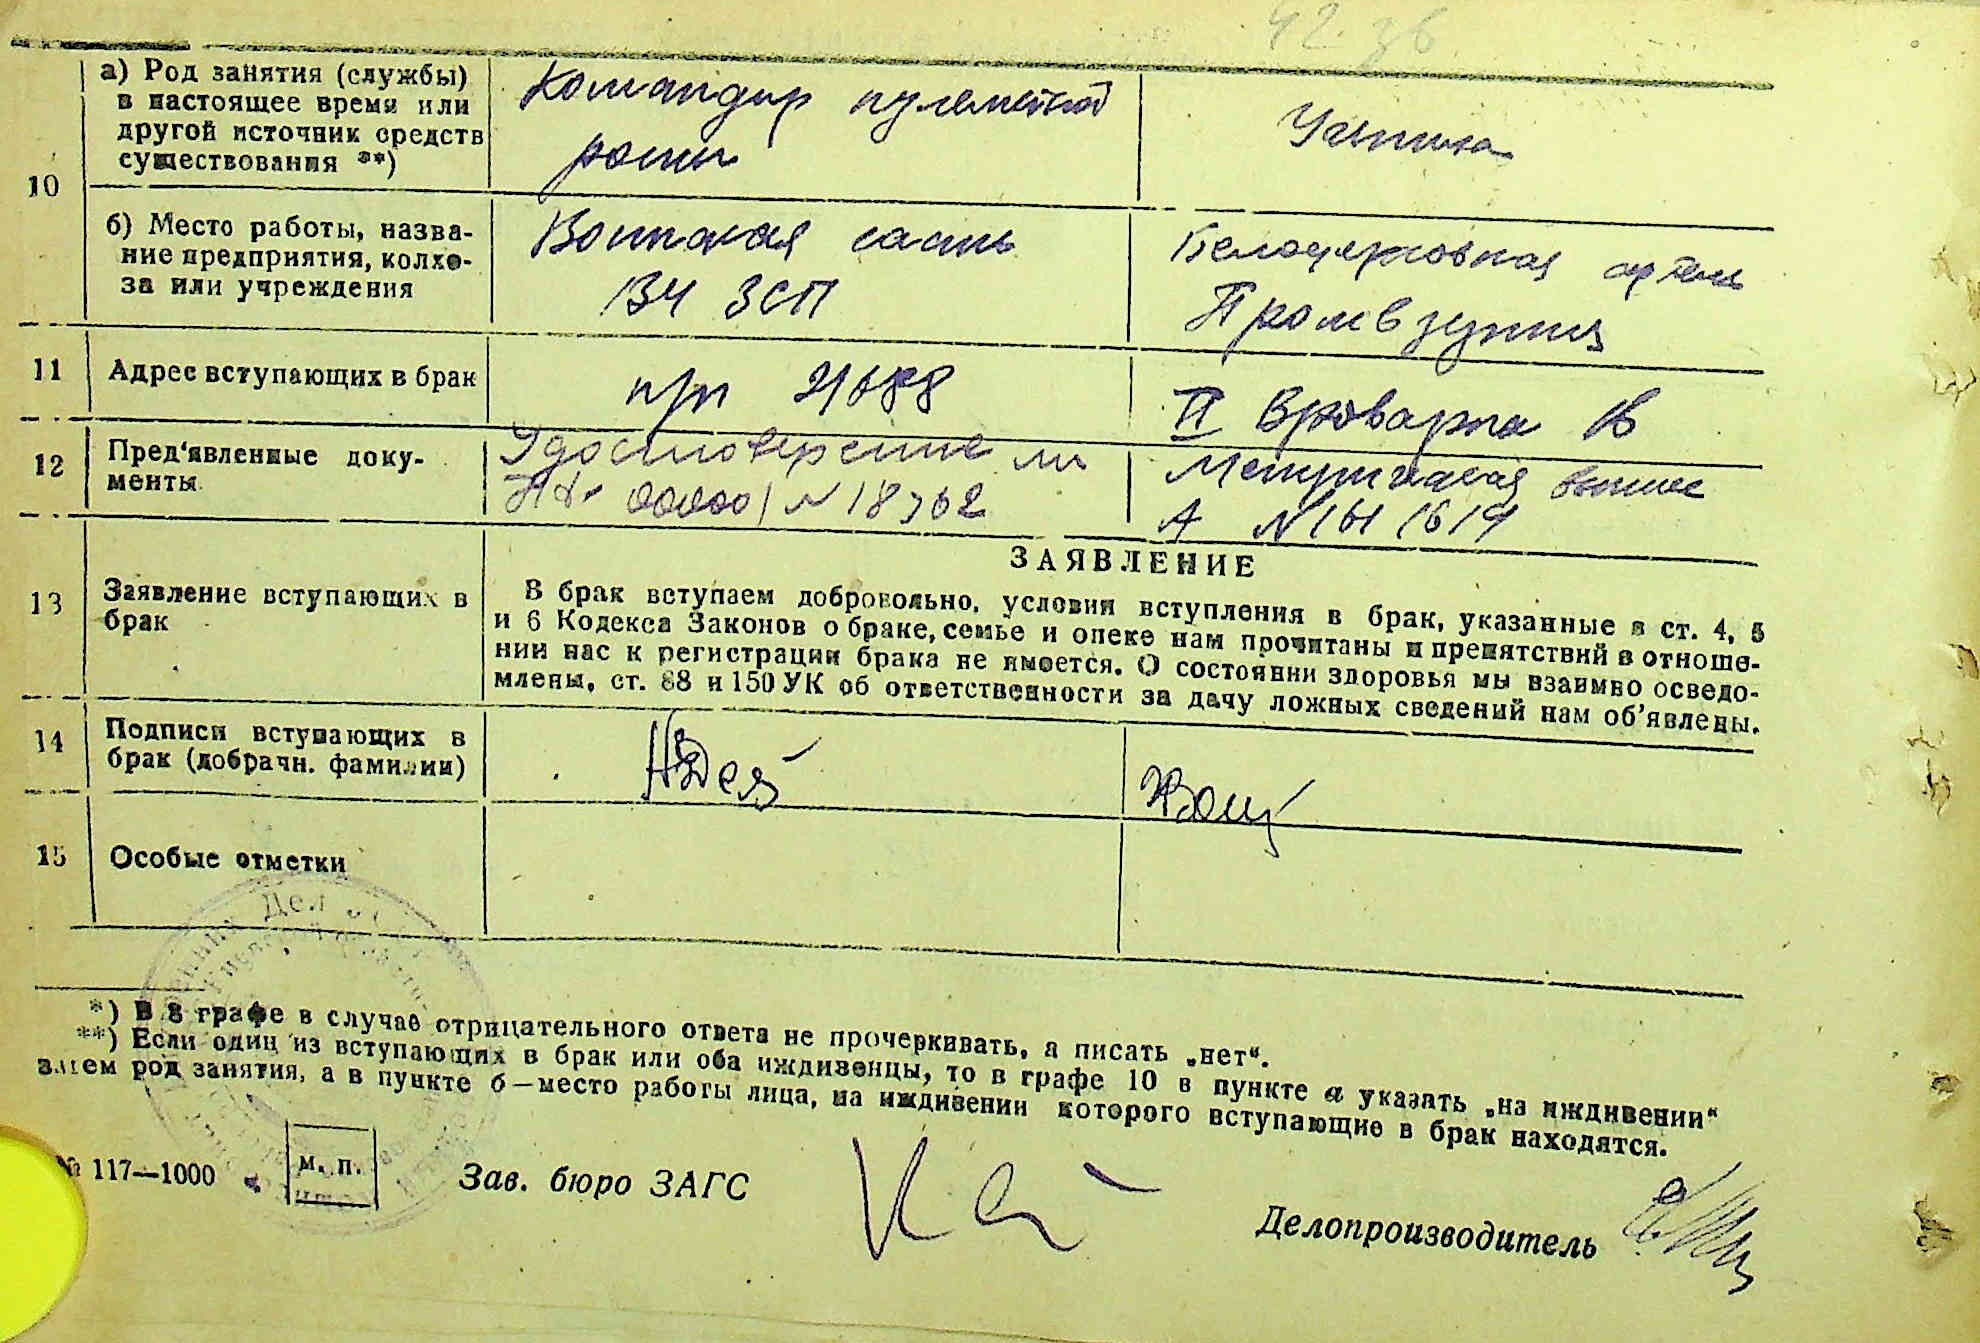 10
а) Род занятия (службы)
в настоящее время или
другой источник средств
существования **)
Командир пулеметной
роты
б) Место работы, назва-
ние предприятия, колхо-
за или учреждения
Воинская часть
ВЧ ЗСП
Белоцерковская артель
11
Адрес вступающих в брак
п/п
12
Пред'явленные доку-
менты
Удостоверение
N 18762
А N
13
Заявление вступающих в
брак
ЗАЯВЛЕНИЕ
В брак вступаем добровольно, условия вступления в брак, указанные в ст. 4, 5
и 6 Кодекса Законов о браке, семье и опеке нам прочитаны и препятствий в отноше-
нии нас к регистрации брака не имеется. О состоянии здоровья мы взаимно осведо-
млены, ст. 88 и 150 УК об ответственности за дачу ложных сведений нам об'явлены.
14
Подписи вступающих в
брак (добрачн. фамилии)
15
Особые отметки
*) В 8 графе в случае отрицательного ответа не прочеркивать, а писать „нет“.
**) Если один из вступающих в брак или оба иждивенцы, то в графе 10 в пункте а указать „на иждивении“
затем род занятия, а в пункте б—место работы лица, на иждивении которого вступающие в брак находятся.
№ 117—1000
м. п.
Зав. бюро ЗАГС
Делопроизводитель